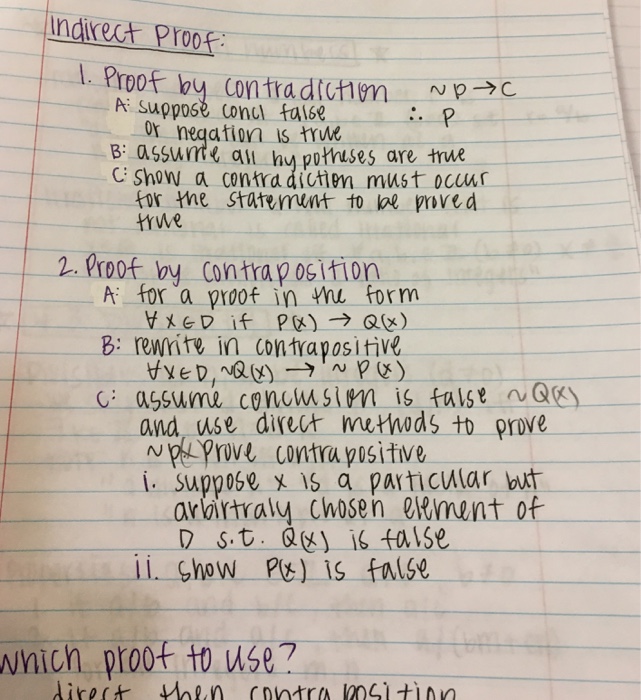 Indirect Proof:
1. Proof by contradiction ~p → c
A: suppose concl false ∴ p
or negation is true
B: assume all hypotheses are true
C: show a contradiction must occur
for the statement to be proved
true
2. Proof by contraposition
A: for a proof in the form
∀x∈D if P(x) → Q(x)
B: rewrite in contrapositive
∀x∈D, ~Q(x) → ~P(x)
C: assume conclusion is false ~Q(x)
and use direct methods to prove
~p(x Prove contrapositive
i. suppose x is a particular but
arbirtraly chosen element of
D s.t. Q(x) is false
ii. show P(x) is false
which proof to use?
direct then contraposition